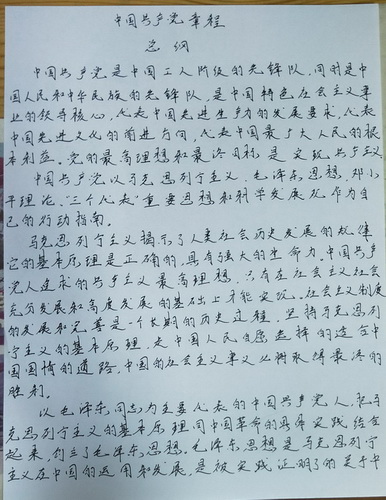 中国共产党章程
总纲
中国共产党是中国工人阶级的先锋队,同时是中
国人民和中华民族的先锋队,是中国特色社会主义事
业的领导核心,代表中国先进生产力的发展要求,代表
中国先进文化的前进方向,代表中国最广大人民的根
本利益。党的最高理想和最终目标是实现共产主义
中国共产党以马克思列宁主义、毛泽东思想、邓小
平理论、“三个代表”重要思想和科学发展观作为自
己的行动指南。
马克思列宁主义揭示了人类社会历史发展的规律,
它的基本原理是正确的,具有强大的生命力。中国共产
党人追求的共产主义最高理想,只有在社会主义社会
充分发展和高度发展的基础上才能实现。社会主义制度
的发展和完善是一个长期的历史过程。坚持马克思列
宁主义的基本原理,走中国人民自愿选择的适合中
国国情的道路,中国的社会主义事业必将取得最终的
胜利。
以毛泽东同志为主要代表的中国共产党人,把马
克思列宁主义的基本原理同中国革命的具体实践结合
起来,创立了毛泽东思想。毛泽东思想是马克思列宁
主义在中国的运用和发展,是被实践证明了的关于中